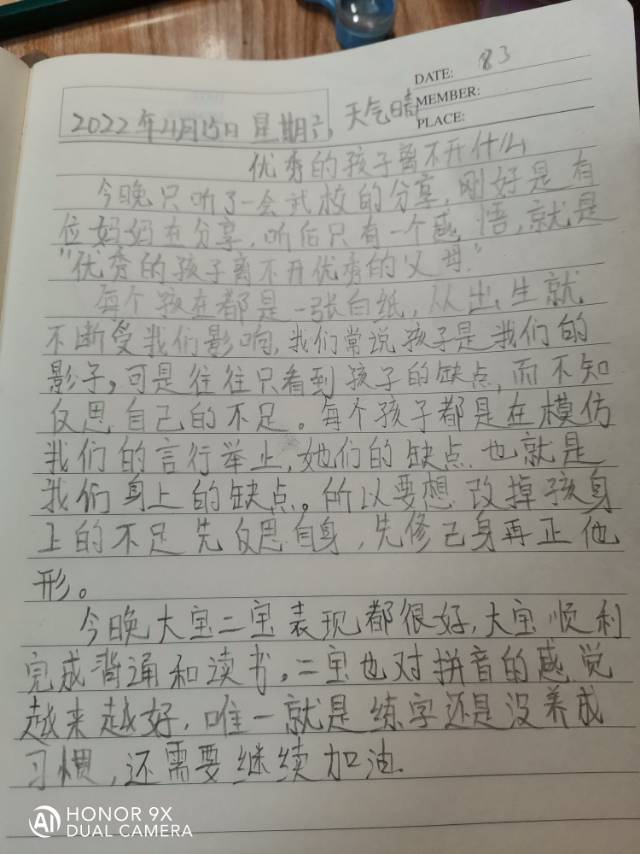 DATE: 83
MEMBER:
PLACE:
2022年11月15日 星期六, 天气晴
优秀的孩子离不开什么
今晚只听了一会武校的分享,刚好是有
位妈妈在分享,听后只有一个感悟,就是
"优秀的孩子离不开优秀的父母."
每个孩在都是一张白纸,从出生就
不断受我们影响,我们常说孩子是我们的
影子,可是往往只看到孩子的缺点,而不知
反思自己的不足。每个孩子都是在模仿
我们的言行举止,她们的缺点也就是
我们身上的缺点。所以要想改掉孩身
上的不足先反思自身,先修己身再正他
形。
今晚大宝二宝表现都很好,大宝顺利
完成背诵和读书。二宝也对拼音的感觉
越来越好,唯一就是练字还是没养成
习惯,还需要继续加油.
AI HONOR 9X
DUAL CAMERA